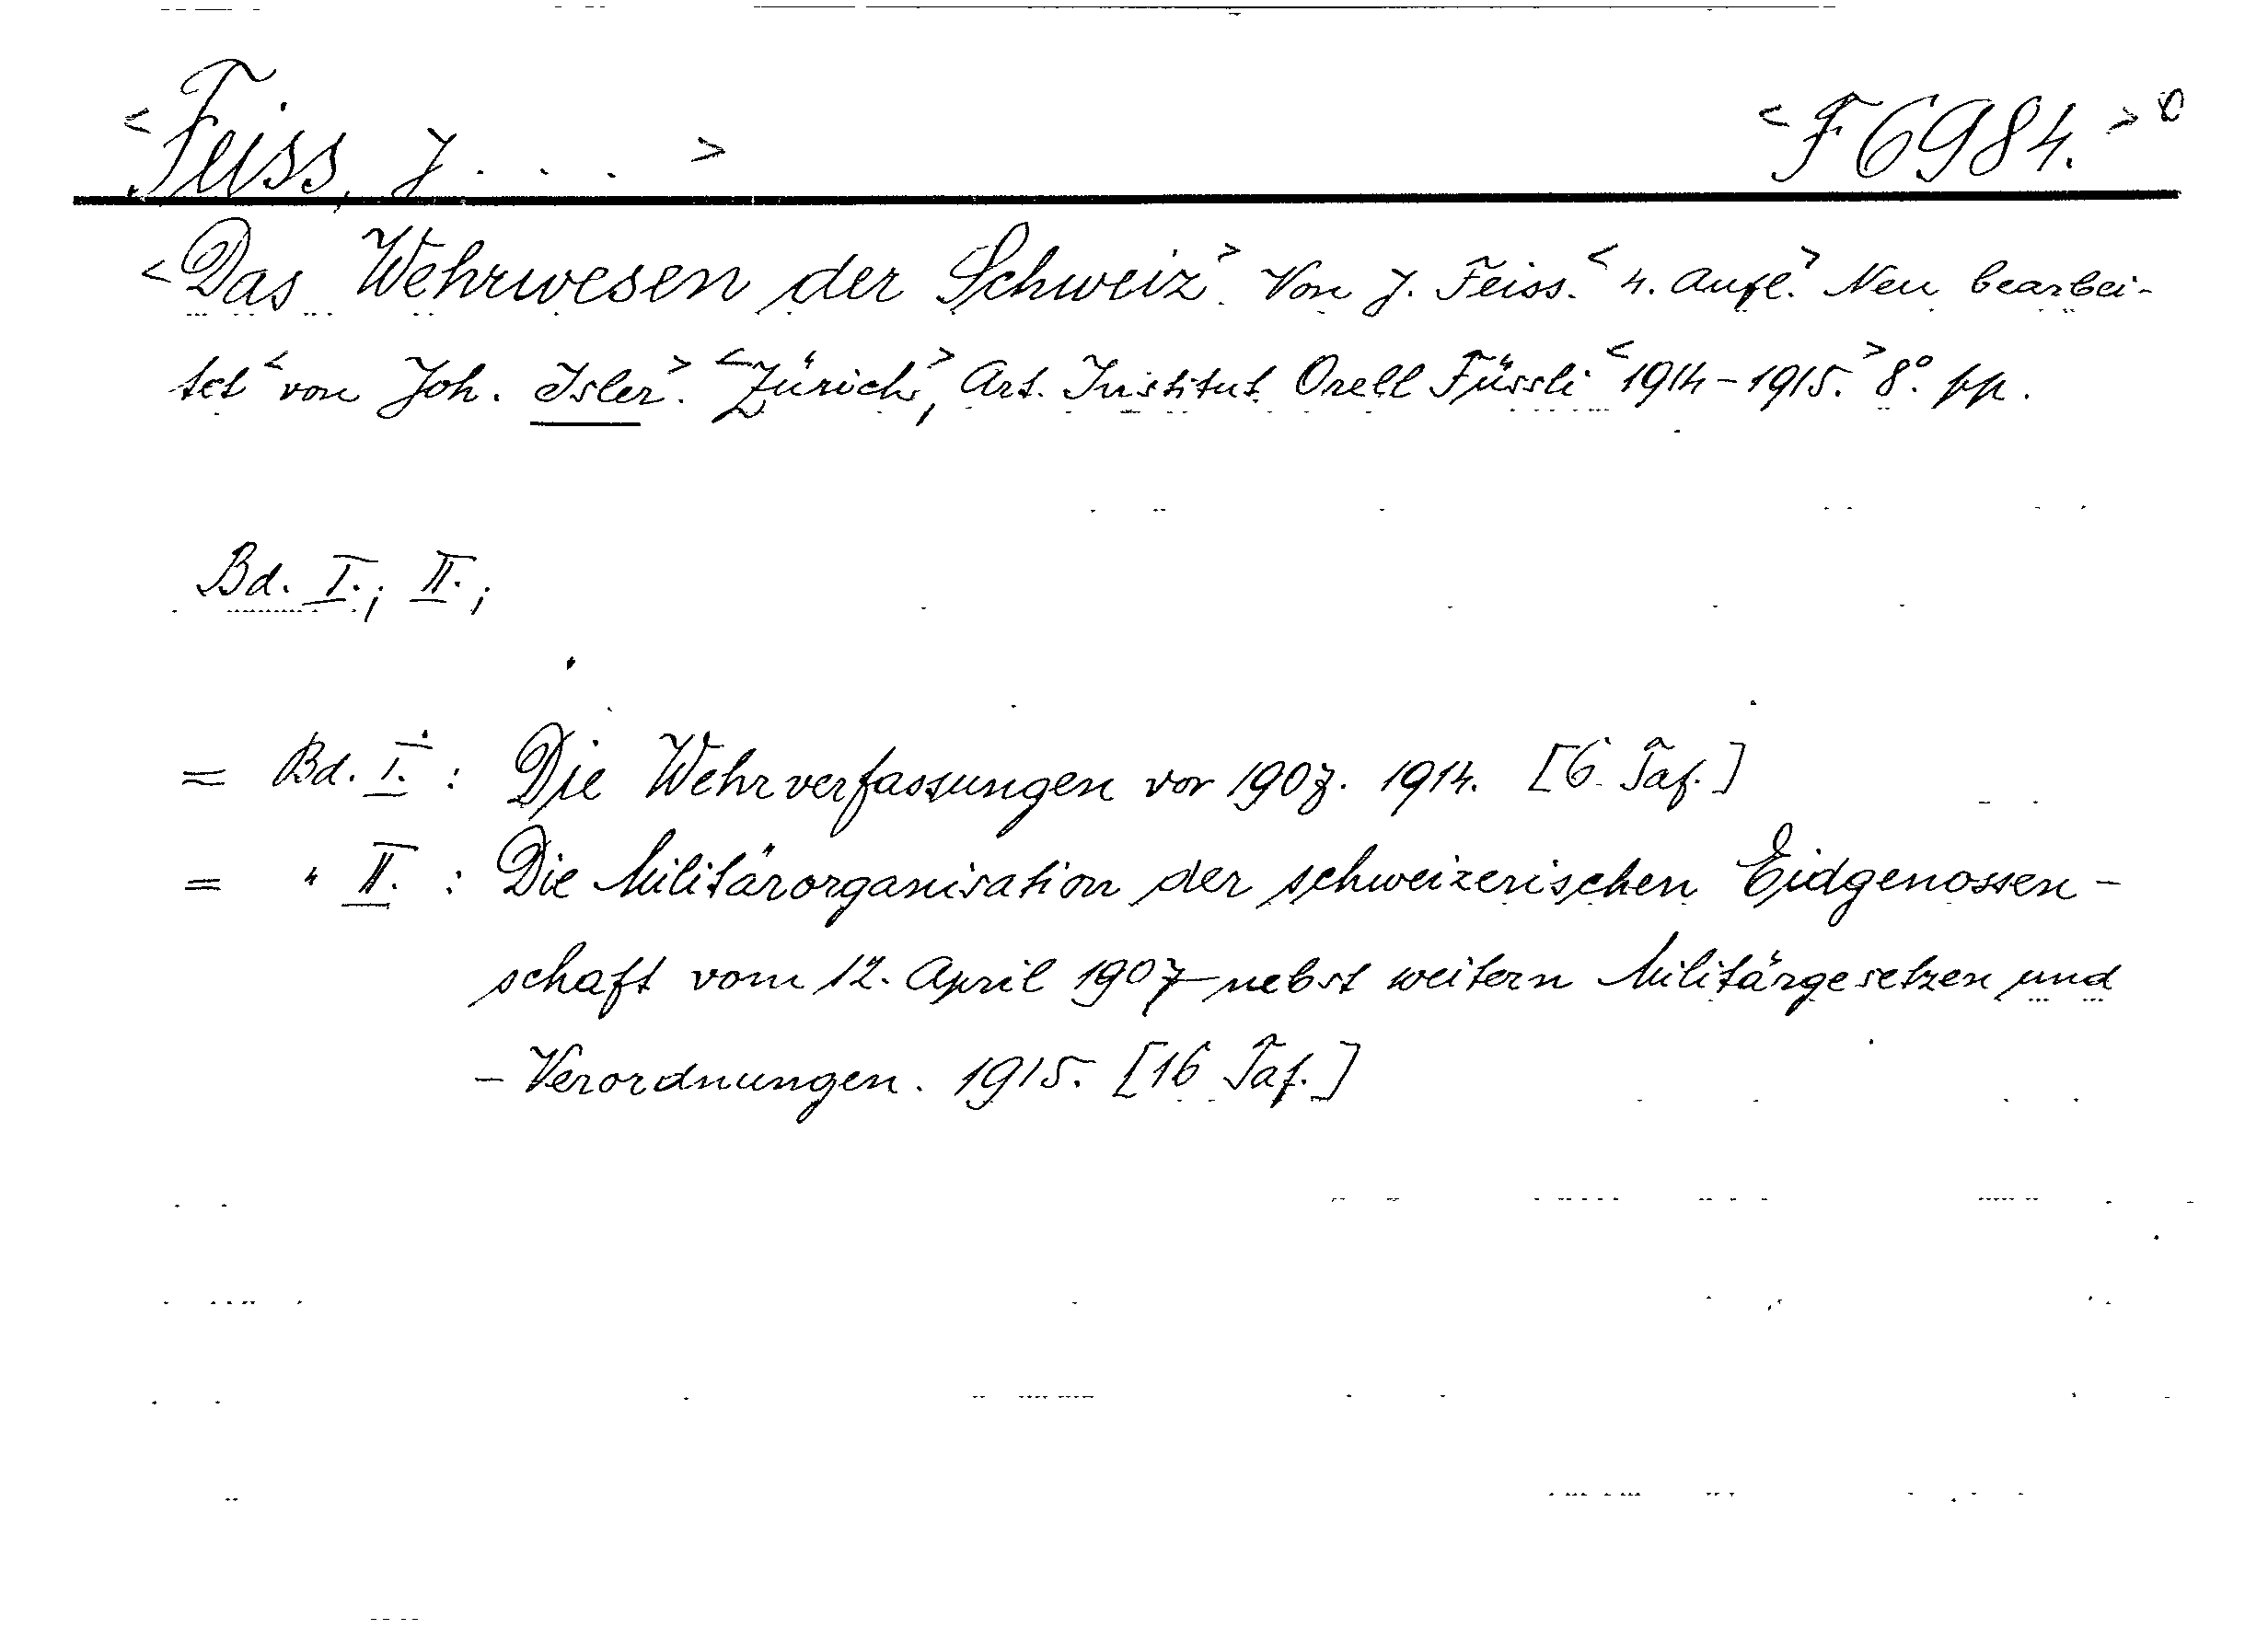 <Feiss, J. . . . > <F 6984.>
<Das Wehrwesen der Schweiz>. Von J. Feiss. <4. Aufl.> Neu bearbei-
tet <von Joh. Isler>. <Zürich>, Art. Institut Orell Füssli <1914-1915.> 8°. pp.
Bd. I.; II.;
= Bd. I. : Die Wehrverfassungen vor 1907. 1914. [6 Taf.]
= " II. : Die Militärorganisation der schweizerischen Eidgenossen-
schaft vom 12. April 1907 nebst weitern Militärgesetzen und
- Verordnungen. 1915. [16 Taf.]